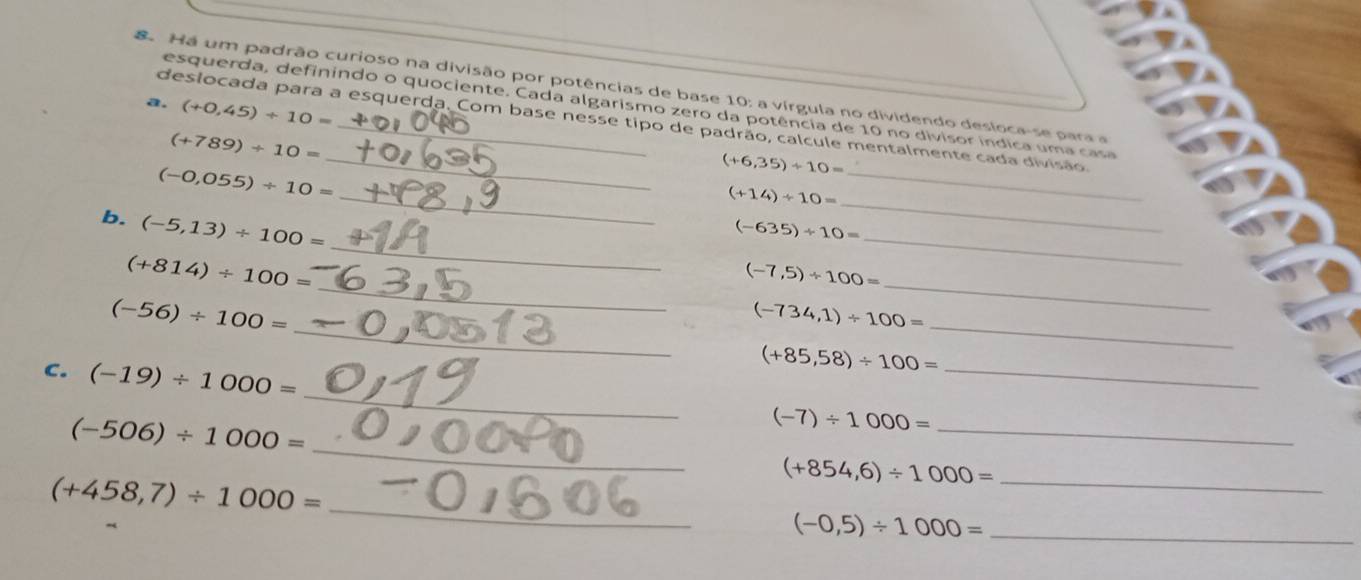 8. Há um padrão curioso na divisão por potências de base 10: a vírgula no dividendo desloca-se para a
esquerda, definindo o quociente. Cada algarismo zero da potência de 10 no divisor indica uma casa
deslocada para a esquerda. Com base nesse tipo de padrão, calcule mentalmente cada divisão.
a. (+0,45) ÷ 10 = +0,045
(+6,35) ÷ 10 =
(+789) ÷ 10 = +0,635
(+14) ÷ 10 =
(−0,055) ÷ 10 = +78,9
(−635) ÷ 10 =
b. (−5,13) ÷ 100 = +14
(−7,5) ÷ 100 =
(+814) ÷ 100 = −63,5
(−734,1) ÷ 100 =
(−56) ÷ 100 = −0,0513
(+85,58) ÷ 100 =
c. (−19) ÷ 1 000 = 0,19
(−7) ÷ 1 000 =
(−506) ÷ 1 000 =
(+854,6) ÷ 1 000 =
(+458,7) ÷ 1 000 = −0,506
(−0,5) ÷ 1 000 =